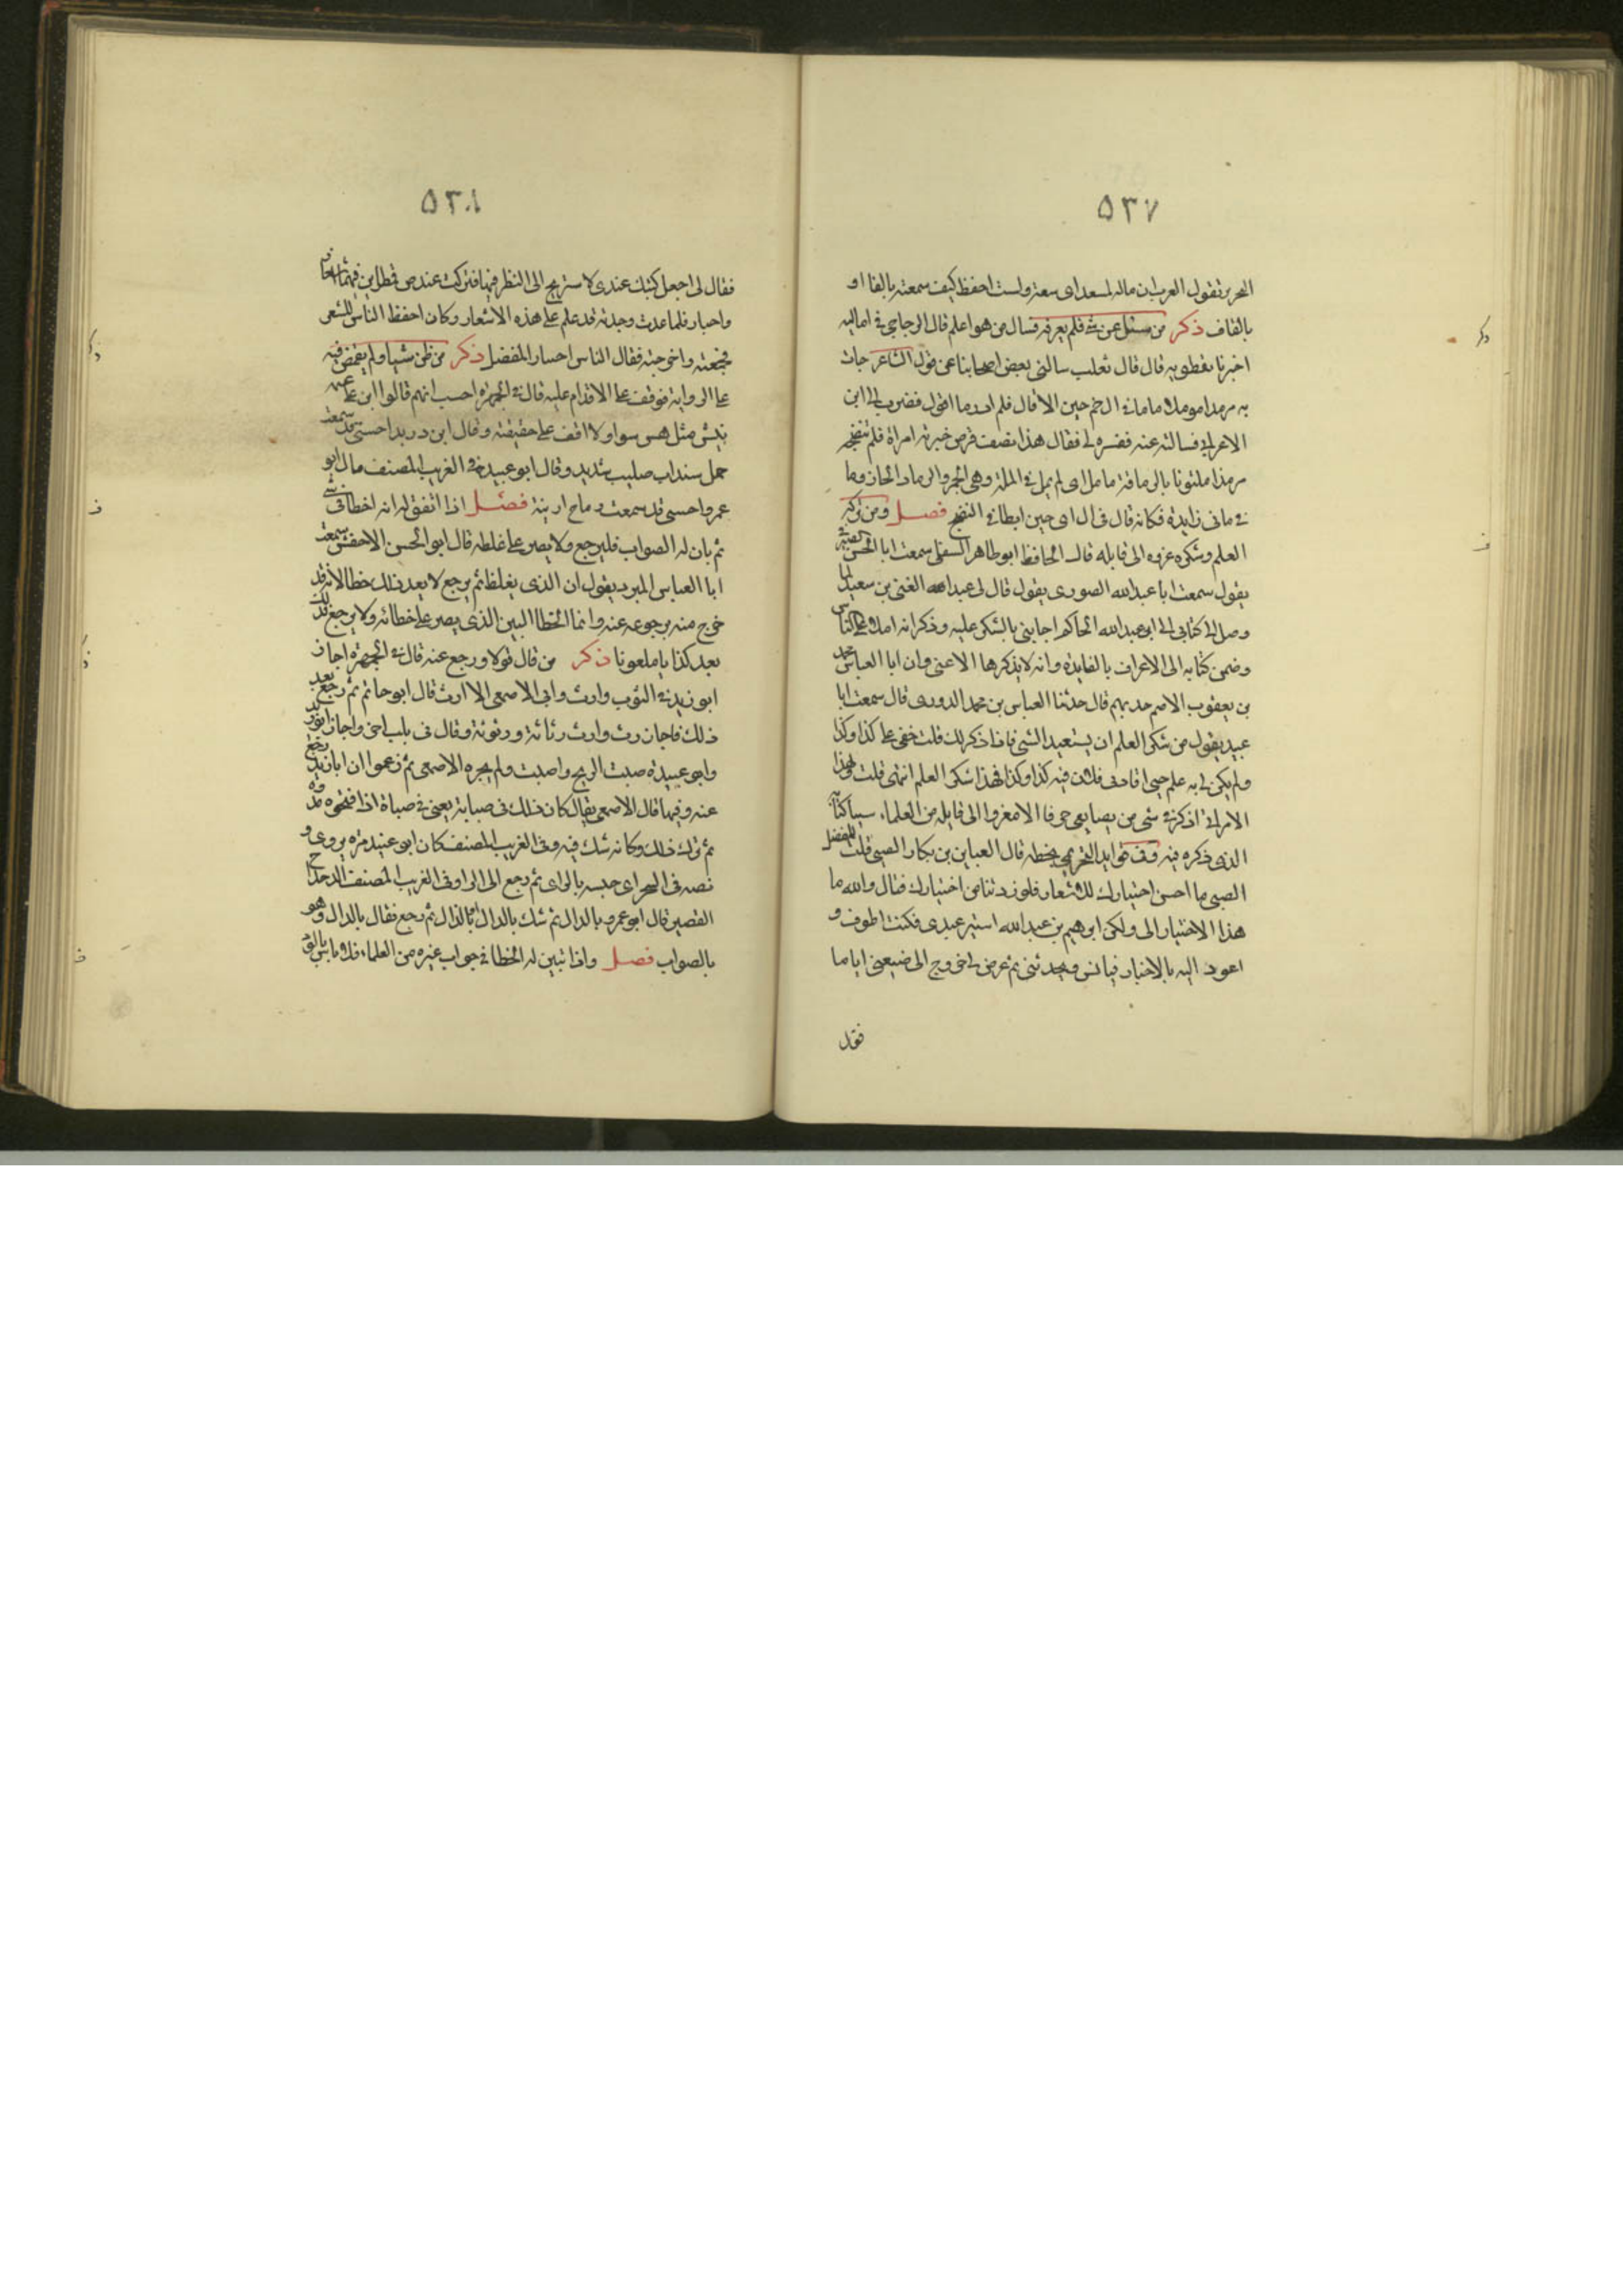 ٥٣٧
البحرين تقول العرب ان ماله لسعد اى سعة ولست احفظ كيف سمعته بالفا او
بالقاف ذكر من سئل عن شئ فلم يعرفه فسال من هو اعلم قال الزجاجى فى اماليه
اخبرنا نفطويه قال قال ثعلب سالنى بعض اصحابنا عن قول الشاعر جات
به مرمدا ما حين الا قال فلم ادر ما اقول فصرت الى ابن
الاعرابى فسالته عنه ففسره لى فقال هذا يصف قرص خبزته امراة فلم تنضجه
مرمدا ملتوتا بالرماد ما مل اى لم يمل فى الملة وهى الجمر والرماد الحار وما
فى مانى زايدة فكانه قال نى ال اى حين ابطا فى النضج فصل ومن بركة
العلم وشكره عزوه الى قايله قال الحافظ ابو طاهر السلفى سمعت ابا الحسن
يقول سمعت ابا عبد الله الصورى يقول قال لى عبد الغنى بن سعيد لما
وصل الى كتابى الى ابى عبد الله الحاكم اجابنى بالشكر عليه وذكر انه املاه على الناس
وضمن كتابه الى الاعراف بالفايدة وانه لا يذكرها الا عنى وان ابا العباس محمد
بن يعقوب الاصم حدثهم قال حدثنا العباس بن محمد الدورى قال سمعت ابا
عبيد يقول من شكر العلم ان يستعيد الشئ فاذا ذكر لك قلت خفى على كذا وكذا
ولم يكن لى به علم حتى افادنى فلان فيه كذا وكذا فهذا شكر العلم انتهى قلت ولهذا
لا ترانى اذكر فى شئ من تصانيفى حرفا الا معزوا الى قايله من العلماء مبينا كتابه
الذى ذكره فيه وفى فوايد النجيرمى بخطه قال العباس بن بكار الضبى قلت للمفضل
الضبى ما احسن اختيارك للاشعار فلو زدتنا من اختيارك فقال والله ما
هذا الاختيار لى ولكن ابرهيم بن عبد الله استتر عندى فكنت اطوف و
اعود اليه بالاخبار فيانس ويحدثنى ثم عرض لى خروج الى ضيعتى اياما
فقد
٥٣٨
فقال لى اجعل كتبك عندى لاستريح الى النظر فيها فتركت عنده قمطرين فيهما اشعار
واخبار فلما عدت وجدته قد علم على هذه الاشعار وكان احفظ الناس للشعر
فجمعته واخرجته فقال الناس اختيار المفضل ذكر من ظن شيا ولم يقف فيه
على الرواية فوقف على الاقدام عليه قال فى الجمهرة احسب انهم قالوا
مثل همس سوا ولا اقف على حقيقته وقال ابن دريد احسبنى قد سمعت
جمل سنداب صليب شديد وقال ابو عبيد فى الغريب المصنف قال ابو
عمرو احسبنى قد سمعت رماح ازنية فصل اذا اتفق له انه اخطا فى شئ
ثم بان له الصواب فليرجع ولا يصر على غلطه قال ابو الحسن الاخفش سمعت
ابا العباس المبرد يقول ان الذى يغلط ثم يرجع لا يعد ذلك خطا لانه قد
خرج منه برجوعه عنه وانما الخطا البين الذى يصر على خطائه ولا يرجع عنه فذاك
يعد كذابا ملعونا ذكر من قال قولا ورجع عنه قال فى الجمهرة اجاز
ابو زيد رث الثوب وارث وابى الاصمعى الا ارث قال ابو حاتم ثم رجع بعد
ذلك فاجاز رث وارث رثاثة ورثوثة وقال فى باب اخر واجاز ابو زيد
وابو عبيدة صبت الريح واصبت ولم يجزه الاصمعى ثم زعموا ان ابا زيد رجع
عنه وفيها قال الاصمعى يقال كان ذلك فى صبايه يعنى فى صباه اذا فتحوه مدوه
ثم ترك ذلك وكانه شك فيه وفى الغريب المصنف كان ابو عبيد مرة يروى
الى الراى ثم رجع الى الزا وفى الغريب المصنف الدحداح
القصير قال ابو عمرو بالدال ثم شك بالدال او بالذال ثم رجع فقال بالدال وهو
بالصواب فصل واذا تبين له الخطا فى جواب غيره من العلماء فلا باس